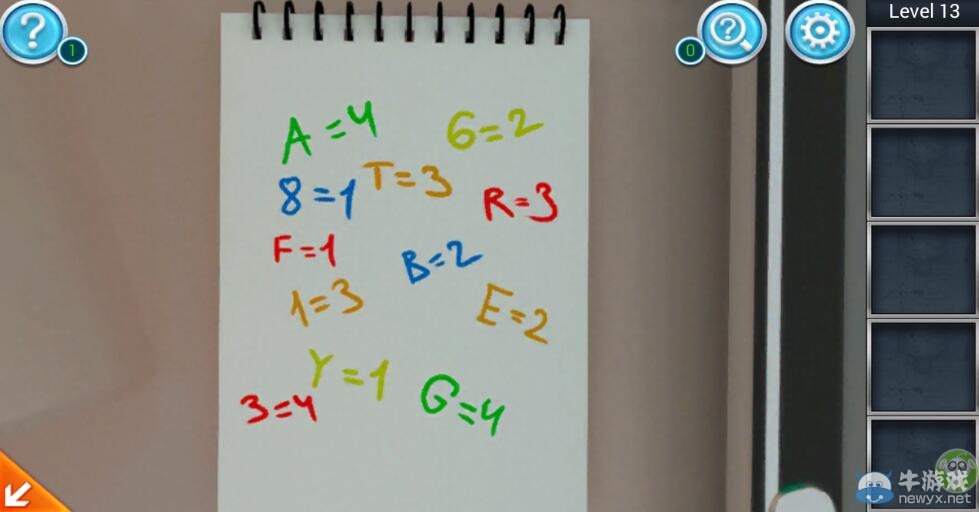 Level 13
?
1
0
?
A=4
6=2
8=1
T=3
R=3
F=1
B=2
1=3
E=2
Y=1
3=4
G=4
牛游戏
newyx.net